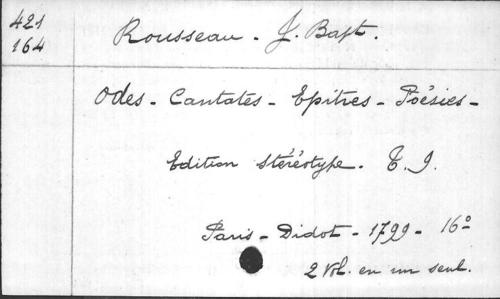 421
164
Rousseau - J. Bapt.
Odes - Cantates - Epitres - Poésies -
Edition stéréotype - T. I.
Paris - Didot - 1799 - 16º
2 vol. en un seul.